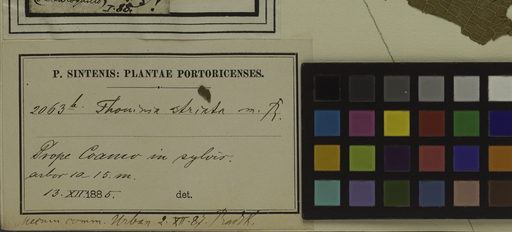 I. 85.
P. SINTENIS: PLANTAE PORTORICENSES.
2063 b. Thouinia striata m. R.
Prope Coamo in sylvis.
arbor 12 15 m.
13. XII 1885. det.
comm. Urban 2. XII. 87. Radlk.